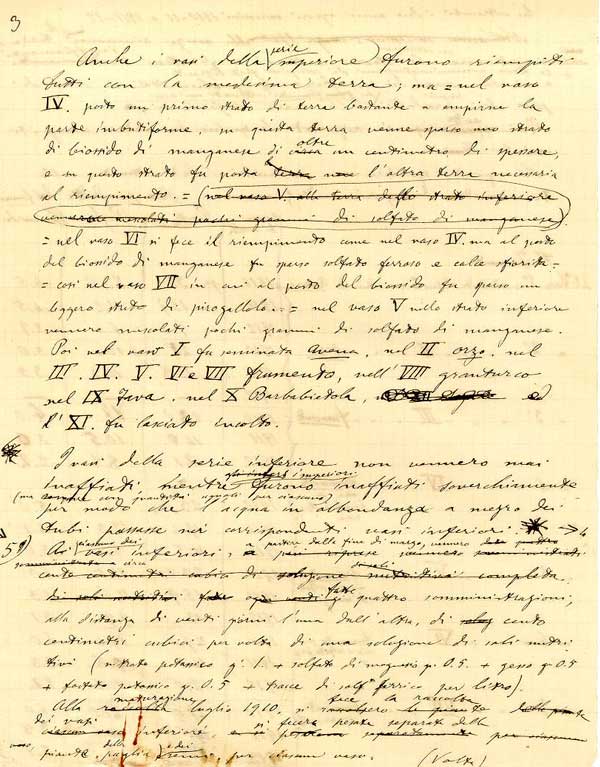 3
Anche i vasi della serie inferiore furono riempiti
tutti con la medesima terra; ma = nel vaso
IV. posto un primo strato di terra bastante a empirne la
parte imbutiforme, su questa terra venne sparso uno strato
di biossido di manganese di circa oltre un centimetro di spessore,
e su questo strato fu posta terra l'altra terra necessaria
al riempimento. = (nel vaso V. alla terra dello strato inferiore
vennero mescolati pochi grammi di solfato di manganese)
= nel vaso VI si fece il riempimento come nel vaso IV. ma al posto
del biossido di manganese fu sparso solfato ferroso e calce sfiorita =
= così nel vaso VII in cui al posto del biossido fu sparso un
leggero strato di pirogallolo.. = nel vaso V nello strato inferiore
vennero mescolati pochi grammi di solfato di manganese.
Poi nel vaso I fu seminata Avena, nel II orzo, nel
III. IV. V. VI e VII frumento, nell' VIII granturco
nel IX Fava, nel X Barbabietola, e
l' XI. fu lasciato incolto.
I vasi della serie inferiore non vennero mai
inaffiati mentre gli superiori furono inaffiati soverchiamente
(ma sempre con quantità uguali per ciascuno)
per modo che l'acqua in abbondanza a mezzo dei
tubi passasse nei corrispondenti vasi inferiori.
5a) Ai ciascuno dei vasi inferiori, a partire dalla fine di marzo, vennero
somministrati circa
cento centimetri cubici di soluzione nutritiva completa
di sali nutritivi fatte ogni venti gi quattro somministrazioni,
alla distanza di venti giorni l'una dall'altra, di cento
centimetri cubici per volta di una soluzione di sali nutri
tivi (nitrato potassico gr. 1. + solfato di magnesio gr. 0.5. + gesso gr 0.5
+ fosfato potassico gr. 0.5 + tracce di solfo ferrico per litro).
Alla maturazione luglio 1910, si fece la raccolta
dei vasi inferiore, e si fecero pesate separate delle
piante, della paglia e dei semi, per ciascun vaso. (Volta)